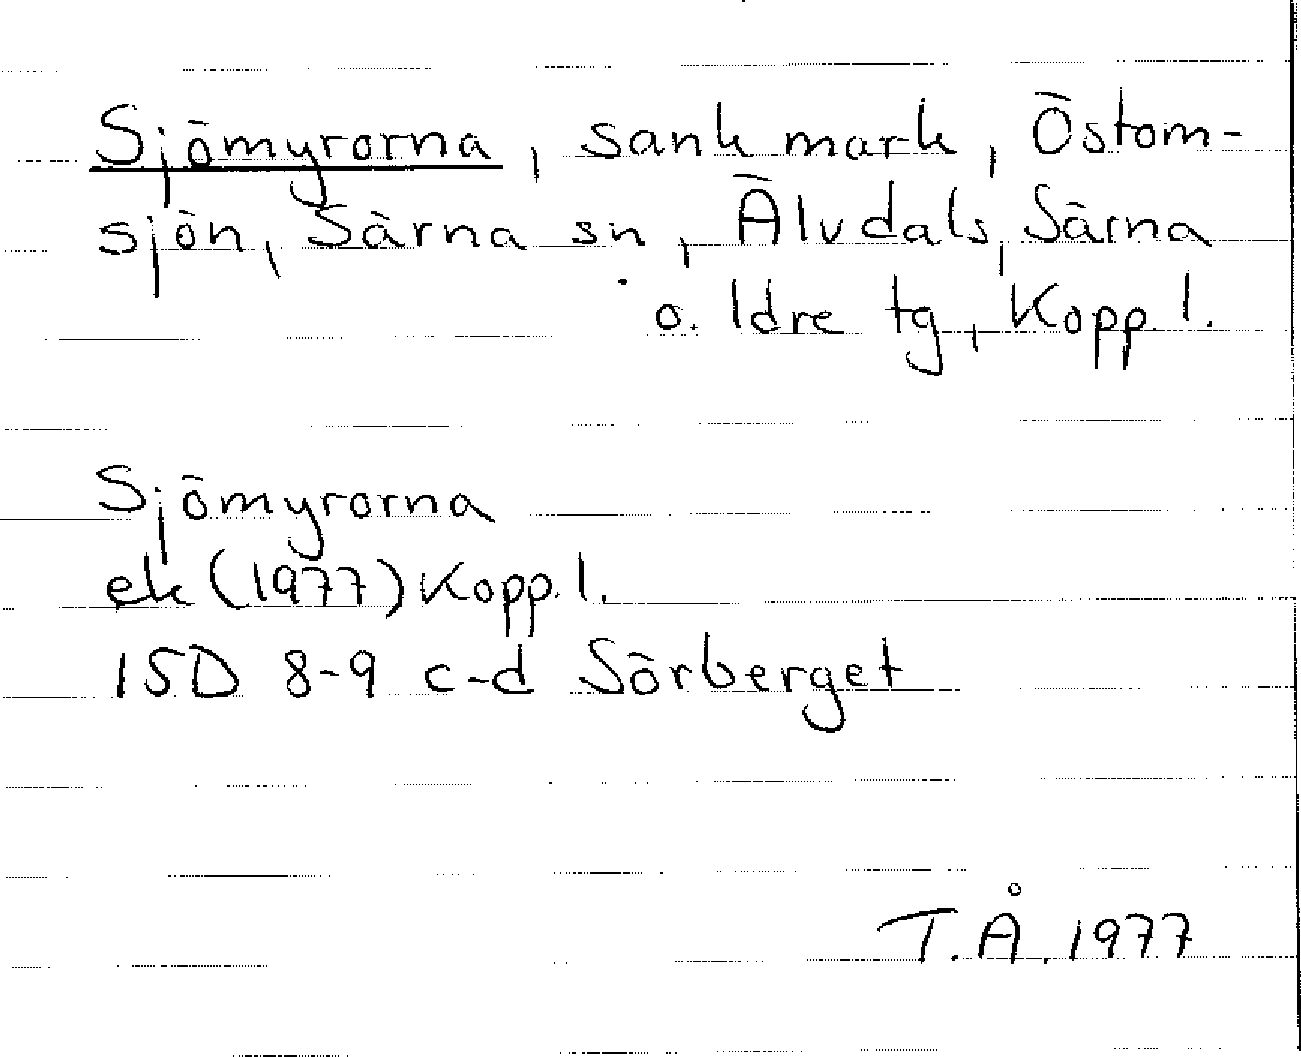 Sjömyrorna, sank mark, Östom-
sjön, Särna sn, Älvdals, Särna
o. Idre tg, Kopp. l.
Sjömyrorna
ek (1977) Kopp. l.
15D 8-9 c-d Sörberget
T.Å. 1977